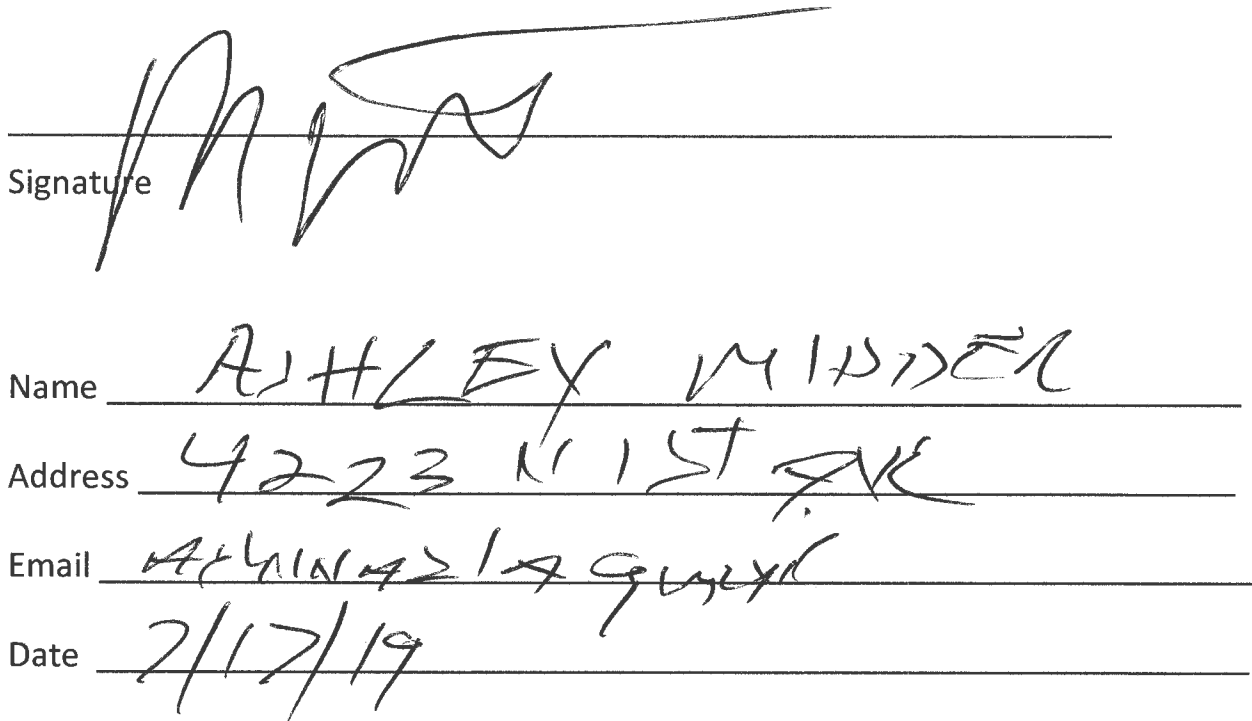 Signature
Name ASHLEY MIDDEL
Address 4223 N 1ST AVE
Email
Date 7/17/19